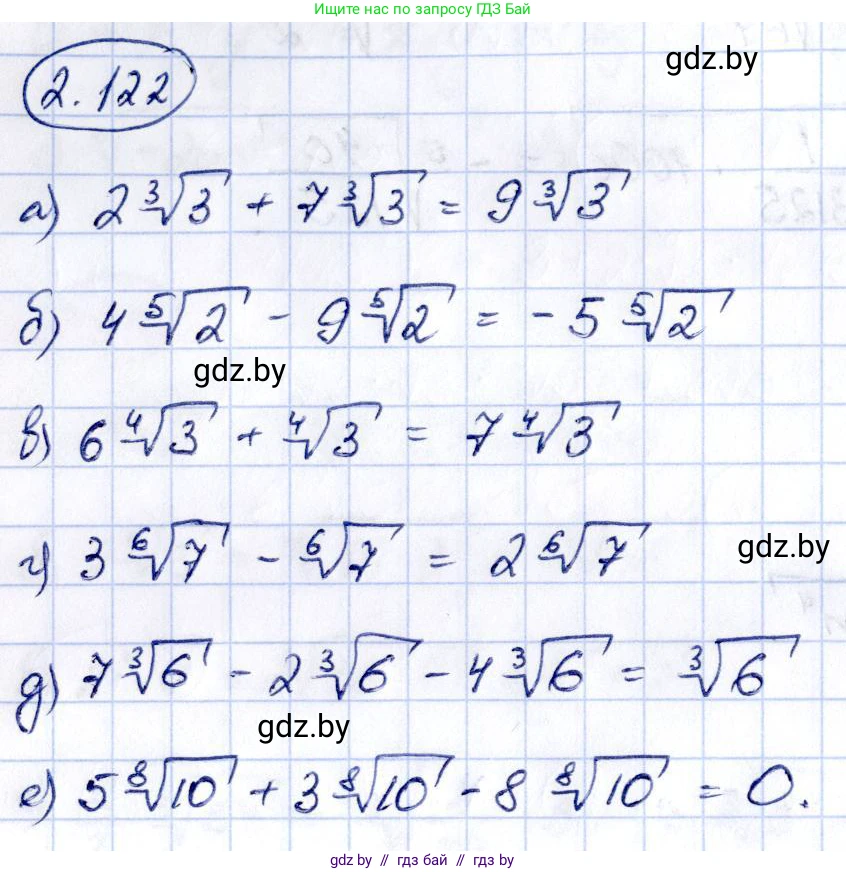 Ищите нас по запросу ГДЗ Бай
2.122
gdz.by
а) 2∛3 + 7∛3 = 9∛3
б) 4⁵√2 - 9⁵√2 = -5⁵√2
gdz.by
в) 6⁴√3 + ⁴√3 = 7⁴√3
г) 3⁶√7 - ⁶√7 = 2⁶√7
gdz.by
д) 7∛6 - 2∛6 - 4∛6 = ∛6
gdz.by
е) 5⁸√10 + 3⁸√10 - 8⁸√10 = 0.
gdz by // гдз бай // гдз by